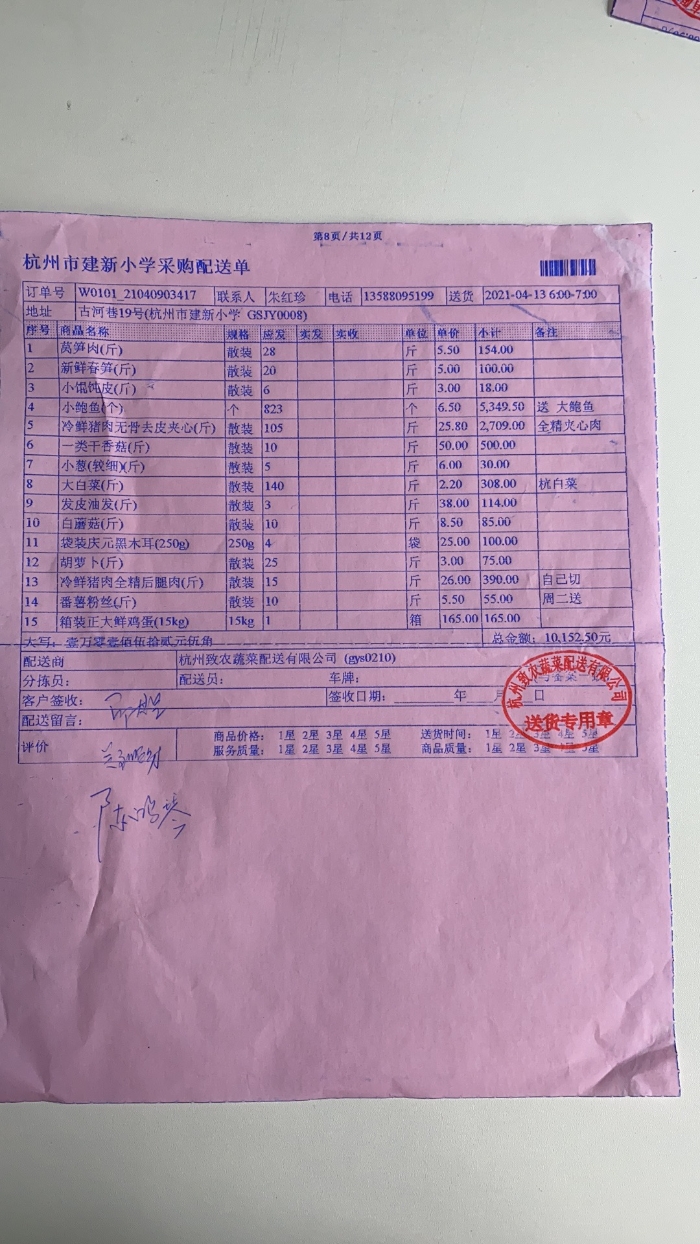 第8页/共12页
杭州市建新小学采购配送单
订单号 W0101_21040903417 联系人 朱红珍 电话 13588095199 送货 2021-04-13 6:00-7:00
地址 古河巷19号(杭州市建新小学 GSJY0008)
序号 商品名称 规格 应发 实发 实收 单位 单价 小计 备注
1 莴笋肉(斤) 散装 28 斤 5.50 154.00
2 新鲜春笋(斤) 散装 20 斤 5.00 100.00
3 小馄饨皮(斤) 散装 6 斤 3.00 18.00
4 小鲍鱼(个) 个 823 个 6.50 5,349.50 送 大鲍鱼
5 冷鲜猪肉无骨去皮夹心(斤) 散装 105 斤 25.80 2,709.00 全精夹心肉
6 一类干香菇(斤) 散装 10 斤 50.00 500.00
7 小葱(较细)(斤) 散装 5 斤 6.00 30.00
8 大白菜(斤) 散装 140 斤 2.20 308.00 杭白菜
9 发皮油发(斤) 散装 3 斤 38.00 114.00
10 白蘑菇(斤) 散装 10 斤 8.50 85.00
11 袋装庆元黑木耳(250g) 250g 4 袋 25.00 100.00
12 胡萝卜(斤) 散装 25 斤 3.00 75.00
13 冷鲜猪肉全精后腿肉(斤) 散装 15 斤 26.00 390.00 自己切
14 番薯粉丝(斤) 散装 10 斤 5.50 55.00 周二送
15 箱装正大鲜鸡蛋(15kg) 15kg 1 箱 165.00 165.00
大写: 壹万零壹佰伍拾贰元伍角 总金额: 10,152.50元
配送商 杭州致农蔬菜配送有限公司 (gys0210)
分拣员: 配送员: 车牌:
客户签收: 签收日期: 年 月 日
配送留言:
评价 商品价格: 1星 2星 3星 4星 5星 送货时间: 1星 2星 3星 4星 5星
服务质量: 1星 2星 3星 4星 5星 商品质量: 1星 2星 3星 4星 5星
杭州致农蔬菜配送有限公司
送货专用章